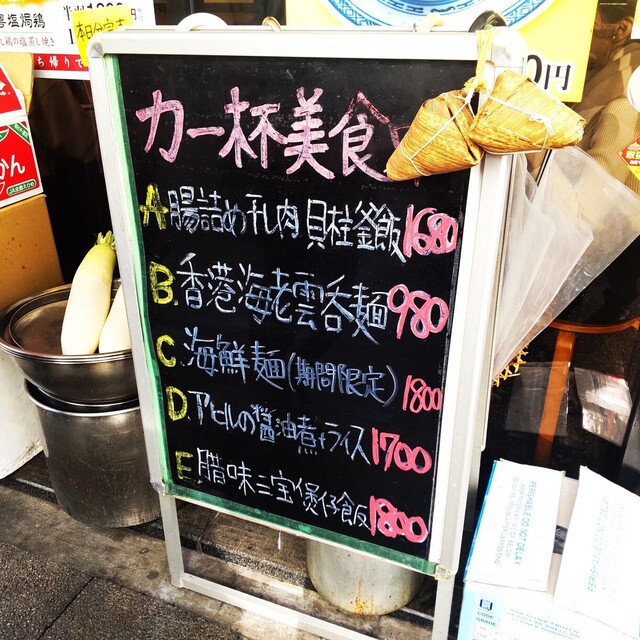 本日分完売
カー杯美食
A 腸詰め干し肉 貝柱釜飯 1680
B. 香港海老雲呑麺 980
C. 海鮮麺(期間限定) 1800
D. アヒルの醤油煮+ライス 1700
E. 腊味三宝煲仔飯 1800
0円
かん